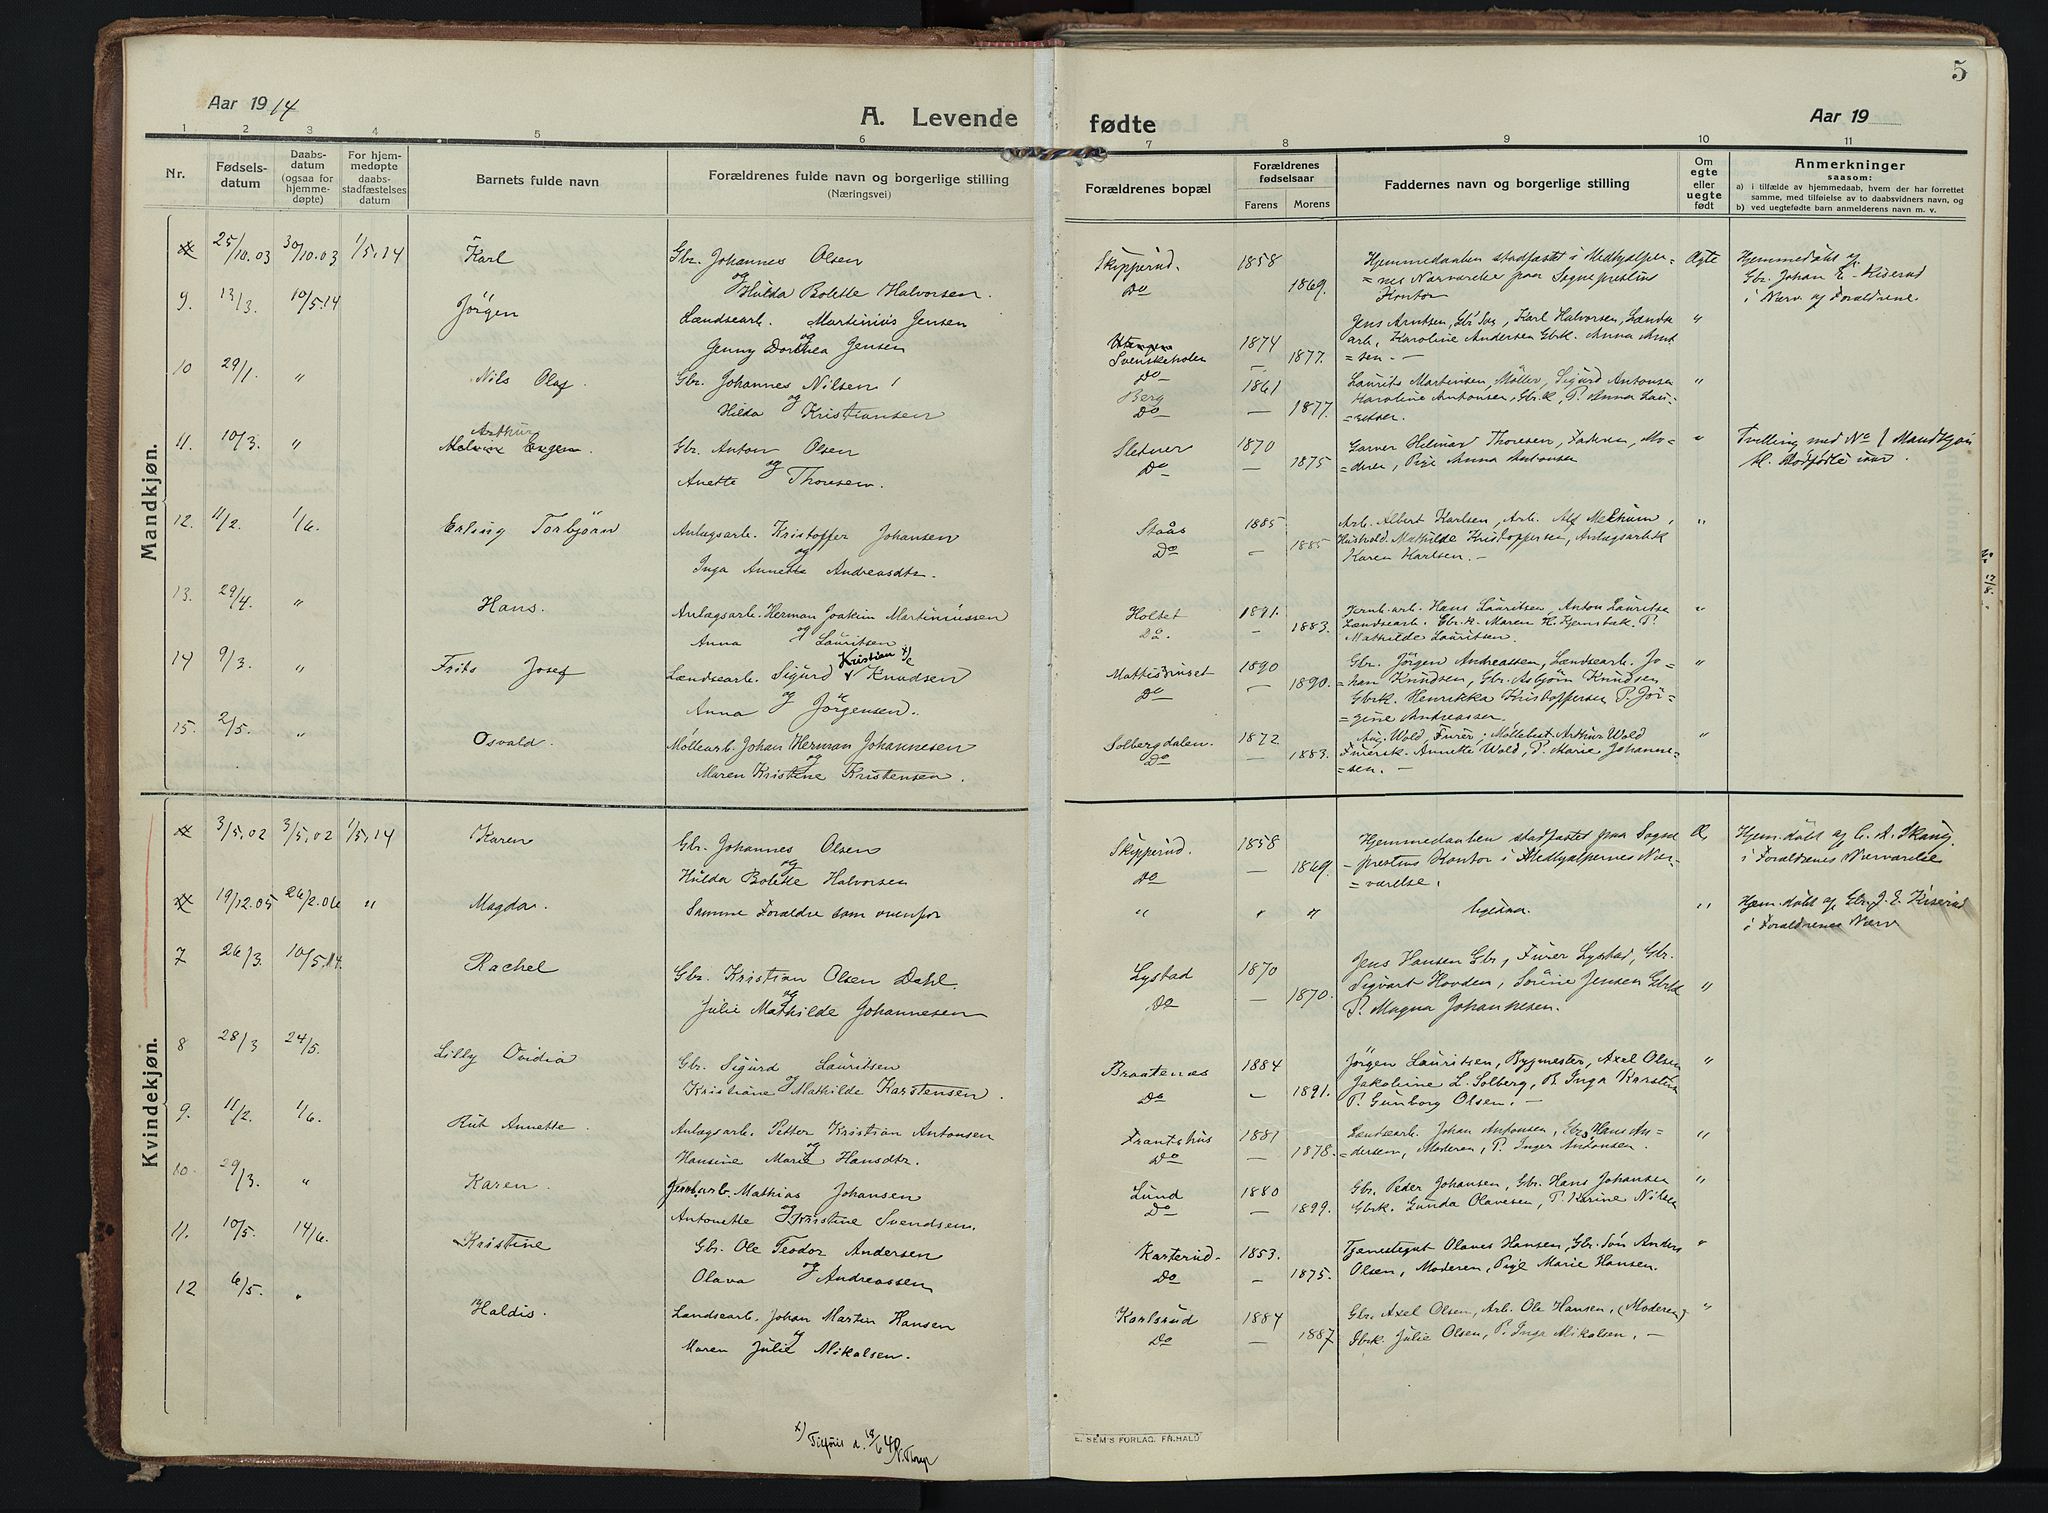 5
Aar 1914
A. Levende
fødte
Aar 19
1 2 3 4 5 6 7 8 9 10 11
Nr.
Fødsels-
datum
Daabs-
datum
(ogsaa for
hjemme-
døpte)
For hjem-
medøpte
daabs-
stadfæstelses
datum
Barnets fulde navn
Forældrenes fulde navn og borgerlige stilling
(Næringsvei)
Forældrenes bopæl
Forældrenes
fødselsaar
Farens Morens
Faddernes navn og borgerlige stilling
Om
egte
eller
uegte
født
Anmerkninger
saasom:
a) i tilfælde av hjemmedaab, hvem der har forrettet
samme, med tilføielse av to daabsvidners navn, og
b) ved uegtefødte barn anmelderens navn m. v.
Mandkjøn.
25/10.03 30/10.03 1/5.14 Karl
Gbr. Johannes Olsen
og
Hulda Bolette Halvorsen.
Skipperud. 1858
Do 1869.
Hjemmedaaben stadfæstet i Medhjælper-
=nes Nærværelse paa Sogneprestens
Kontor
Ægte
Hjemmedøbt af
Gbr. Johan E. Kiserud
i Nærv. af Forældrene
9. 13/3. 10/5.14 Jörgen
Lændsearb. Martinius Jensen
og
Jenny Dorthea Jensen
Svenskeholen 1874
Do — 1877.
Jens Arntsen, Gbr Søn, Karl Halvorsen, Lændse
arb, Karoline Andersen Gbrk. Anna Arnt
=sen. —
"
10 29/1. " Nils Olaf.
Gbr. Johannes Nilsen
og
Hilda Kristiansen
Berg 1861
Do — 1877.
Laurits Martinsen, Möller, Sigurd Antonsen
Karoline Antonsen, Gbr.k, P. Anna Lau-
=ritsen.
"
11. 10/3. " Arthur
Gbr. Anton Olsen
og
Anette Thoresen.
Sletner 1870
Do — 1875
Garver Hilmar Thoresen, Faderen, Mo-
deren, Pige Anna Antonsen
"
Tvilling med No 1 Mandkjön
bl. Dødfødte iaar.
12. 11/2. 1/6. Erling Torbjörn
Anlægsarb. Kristoffer Johansen
og
Inga Annette Andreasdtr.
Staås 1885
Do — 1885
Arb. Albert Karlsen, Arb. Alf Mellum,
Hushold. Mathilde Kristoffersen, Anlægsarbk
Karen Karlsen. —
"
13. 29/4. " Hans.
Anlægsarb. Herman Joakim Martiniussen
og
Anna Lauritsen
Holtet 1891.
Do. — 1883.
Jernb.arb. Hans Lauritsen, Anton Lauritsen
Lændsearb. Gbr.k. Maren H. Fjernbæk. P.
Mathilde Lauritsen.
"
14 9/3. " Frits Josef
Kristian x)
Lændsearb. Sigurd Knudsen
og
Anna Jörgensen.
Mattisruset 1890
Do — 1890.
Gbr. Jörgen Andreassen, Lændsearb. Jo=
=han Knudsen, Gbr. Asbjörn Knudsen
Gbrk. Henrikka Kristoffersen P. Jör=
=gine Andreassen.
"
15. 2/5. " Osvald.
Møllearb. Johan Herman Johannesen
og
Maren Kristine Kristensen.
Solbergdalen. 1872.
Do — 1883.
Aug. Wold, Furer, Møllebest. Arthur Wold
Furersk. Annette Wold, P. Marie Johanne=
=sen. —
"
Kvindekjøn.
3/5.02 3/5.02 1/5.14 Karen
Gbr. Johannes Olsen
og
Hulda Bolette Halvorsen
Skipperud. 1858
Do — 1869.
Hjemmedaaben stadfæstet paa Sogne
prestens Kontor i Medhjælpernes Nær=
=værelse.
Æ
Hjem. døbt af C. A. Skaug.
i Forældrenes Nærværelse
19/12.05 26/2.06 " Magda.
Samme Forældre som ovenfor
" " "
ligedan.
"
Hjem. døbt af Gbr. J. E. Kiserud
i Forældrenes Nærv
7 26/3. 10/5.14. Rachel
Gbr. Kristian Olsen Dahl.
og
Julie Mathilde Johannesen
Lystad 1870
Do — 1870.
Jens Hansen Gbr, Furer Lystad, Gbr.
Sigvart Hovden, Sörine Jensen Gbrk
P. Magna Johannesen.
"
8 28/3 24/5. Lilly Ovidia
Gbr. Sigurd Lauritsen
og
Kristiane Mathilde Karstensen.
Braatenæs 1884
Do - 1891.
Jörgen Lauritsen, Bygmester, Axel Olsen
Jakobine L. Solberg, P. Inga Karstens
P. Gunborg Olsen. —
"
9. 11/2. 1/6. Rut Annette.
Anlægsarb. Petter Kristian Antonsen
og
Hansine Marie Hansdtr.
Frantshus 1881
Do — 1878.
Lændsearb. Johan Antonsen, Gbr. Hans An=
=dersen, Moderen, P. Inger Antonsen.
"
10. 29/3. " Karen.
Jernb.arb. Mathias Johansen
og
Antonette Kristine Svendsen.
Lund 1880
Do — 1899.
Gbr. Peder Johansen, Gbr. Hans Johansen
Gbrk. Lunda Olavesen, P. Karine Nilsen
"
11. 10/5. 14/6. Kristine
Gbr. Ole Teodor Andersen
og
Olava Andreassen
Karterud. 1853.
Do — 1875.
Tjenestegut Olaves Hansen, Gbr. Søn Anders
Olsen, Moderen, Pige Marie Hansen.
"
12 6/5. " Haldis.
Lændsearb. Johan Martin Hansen
og
Maren Julie Mikalsen.
Karlsrud 1884
Do — 1887
Gbr. Axel Olsen, Arb. Ole Hansen, (Moderen)
Gbrk. Julie Olsen, P. Inga Mikalsen. —
"
x) Tilføiet d. 18/6 40
E. SEM'S FORLAG. FR.HALD